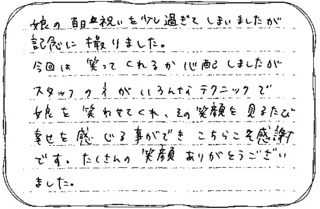 娘の百日祝いを少し過ぎてしまいましたが
記念に撮りました。
今回は笑ってくれるか心配しましたが
スタッフの方がいろんなテクニックで
娘を笑わせてくれ、その笑顔を見るたび
幸せを感じる事ができこちらこそ感謝
です。たくさんの笑顔ありがとうござい
ました。